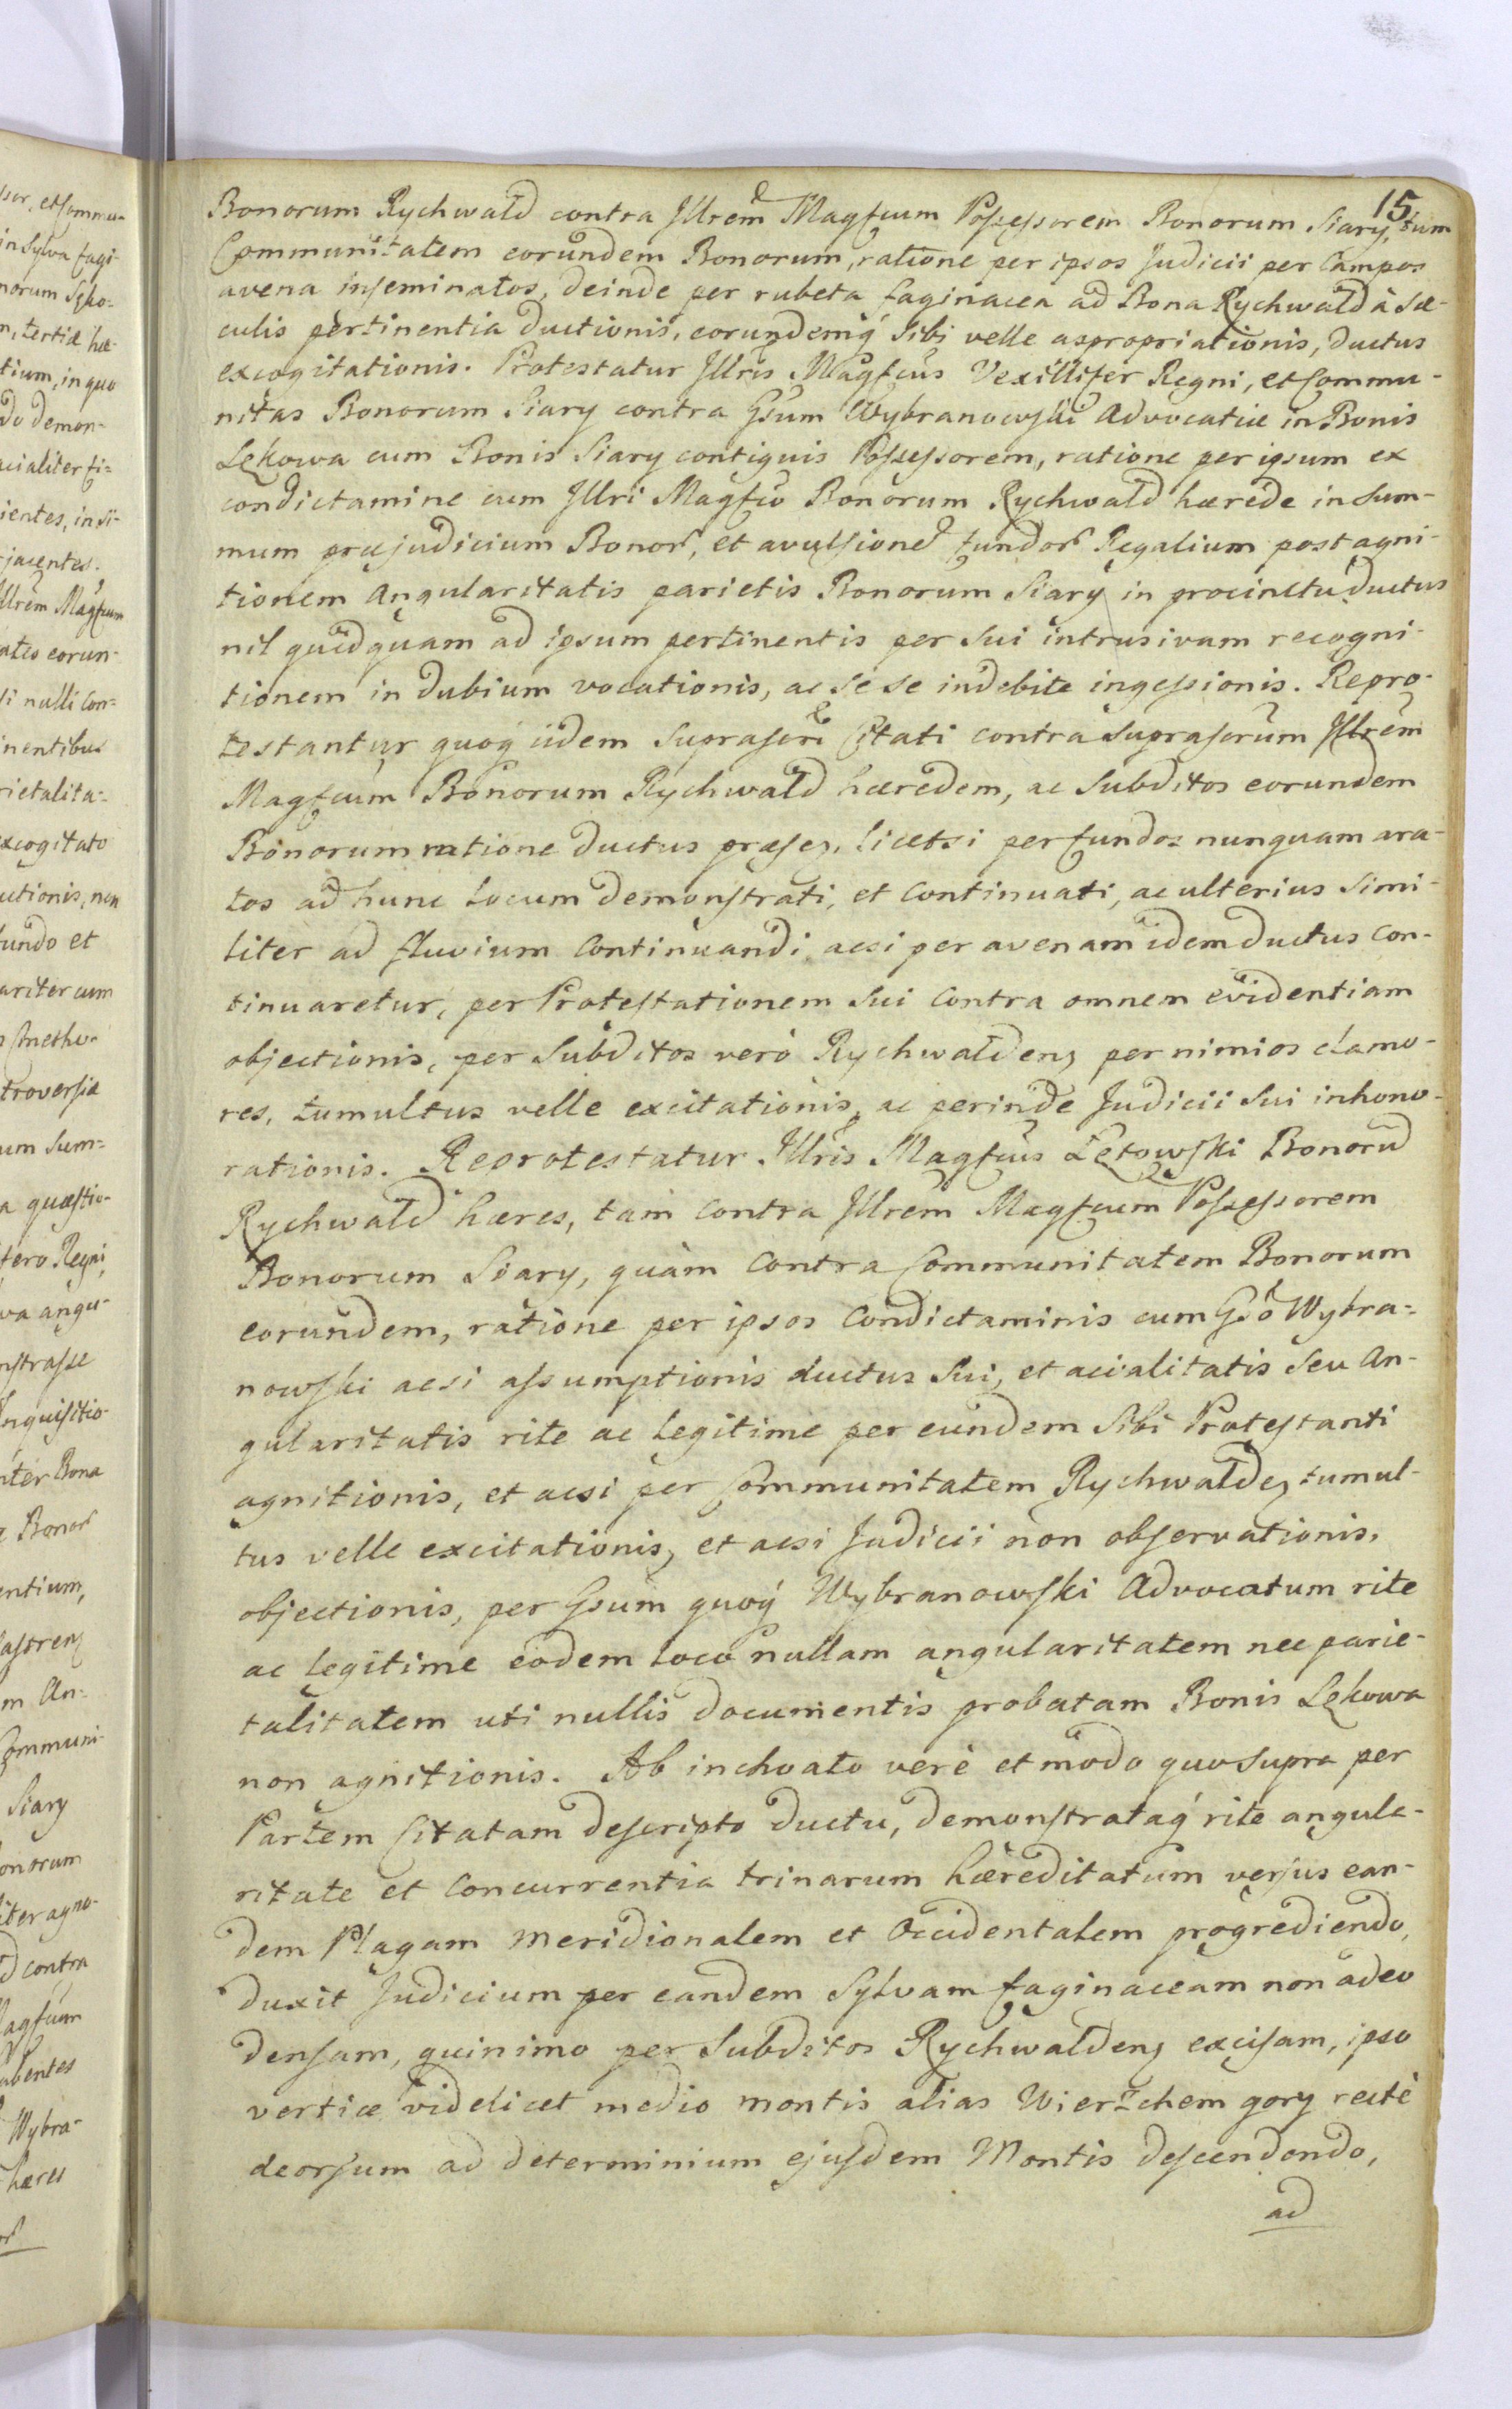 15
Bonorum Rychwald contra Jllrem Magfcum Possessorem Bonorum Siary, tum
Communitatem eorundem Bonorum, ratione per ipsos Judicii per Campos
avena inseminatos, deinde per rubeta faginacea ad Bona Rychwald à Sæ-
culis pertinentia ductionis, eorundemq́ Sibi velle appropriationis, ductus
excogitationis. Protestatur Jllris Magfcus Vexillifer Regni, et Commu-
nitas Bonorum Siary contra Gsum Wybranowski Advocatiæ in Bonis
Lękowa cum Bonis Siary contiguis Possessorem, ratione per ipsum ex
condictamine cum Jllri Magfco Bonorum Rychwald hærede in Sum-
mum præjudicium Bonor, et avulsione fundor Regalium post agni-
tionem Angularitatis parietis Bonorum Siary in procinctu ductus
nil quidquam ad ipsum pertinentis per Sui intrusivam recogni-
tionem in dubium vocationis, ac Se se indebite ingessionis. Repro-
testantur quoq iidem Suprascri Citati contra Suprascrum Jllrem
Magfcum Bonorum Rychwald hæredem, ac Subditos eorundem
Bonorum ratione ductus præses, licetsi per fundos nunquam ara-
tos ad hunc Locum demonstrati, et Continuati, ac ulterius Simi-
liter ad fluvium Continuandi acsi per avenam idem ductus Con-
tinuaretur, per Protestationem Sui Contra omnem evidentiam
objectionis, per Subditos verò Rychwaldens per nimios clamo-
res, tumultus velle excitationis, ac perinde Judicii Sui inhono-
rationis. Reprotestatur Jllris Magfcus Łętowski Bonorū
Rychwald hæres, tam Contra Jllrem Magfcum Possessorem
Bonorum Siary, quàm Contra Communitatem Bonorum
eorundem, ratione per ipsos Condictaminis cum Gso Wybra-
nowski acsi assumptionis ductus Sui, et acialitatis Seu An-
gularitatis rite ac Legitime per eundem Sibi Protestanti
agnitionis, et acsi per Communitatem Rychwaldes tumul-
tus velle excitationis, et acsi Judicii non observationis,
objectionis, per Gsum quoq́ Wybranowski Advocatum rite
ac Legitime eodem Loco nullam angularitatem nec parie-
talitatem uti nullis documentis probatam Bonis Lękowa
non agnitionis. Ab inchoato verè et modo quo Supra per
Partem Citatam descripto ductu, demonstrataq́ rite angula-
ritate et Concurrentia trinarum hæreditatum versus ean-
dem Plagam Meridionalem et Occidentalem progrediendo,
duxit Judicium per eandem Sylvam faginaceam non adeo
densam, quinimo per Subditos Rychwaldens excisam, ipso
vertice videlicet medio montis alias Wierzchem gory rectè
deorsum ad determinium ejusdem Montis descendendo,
ad